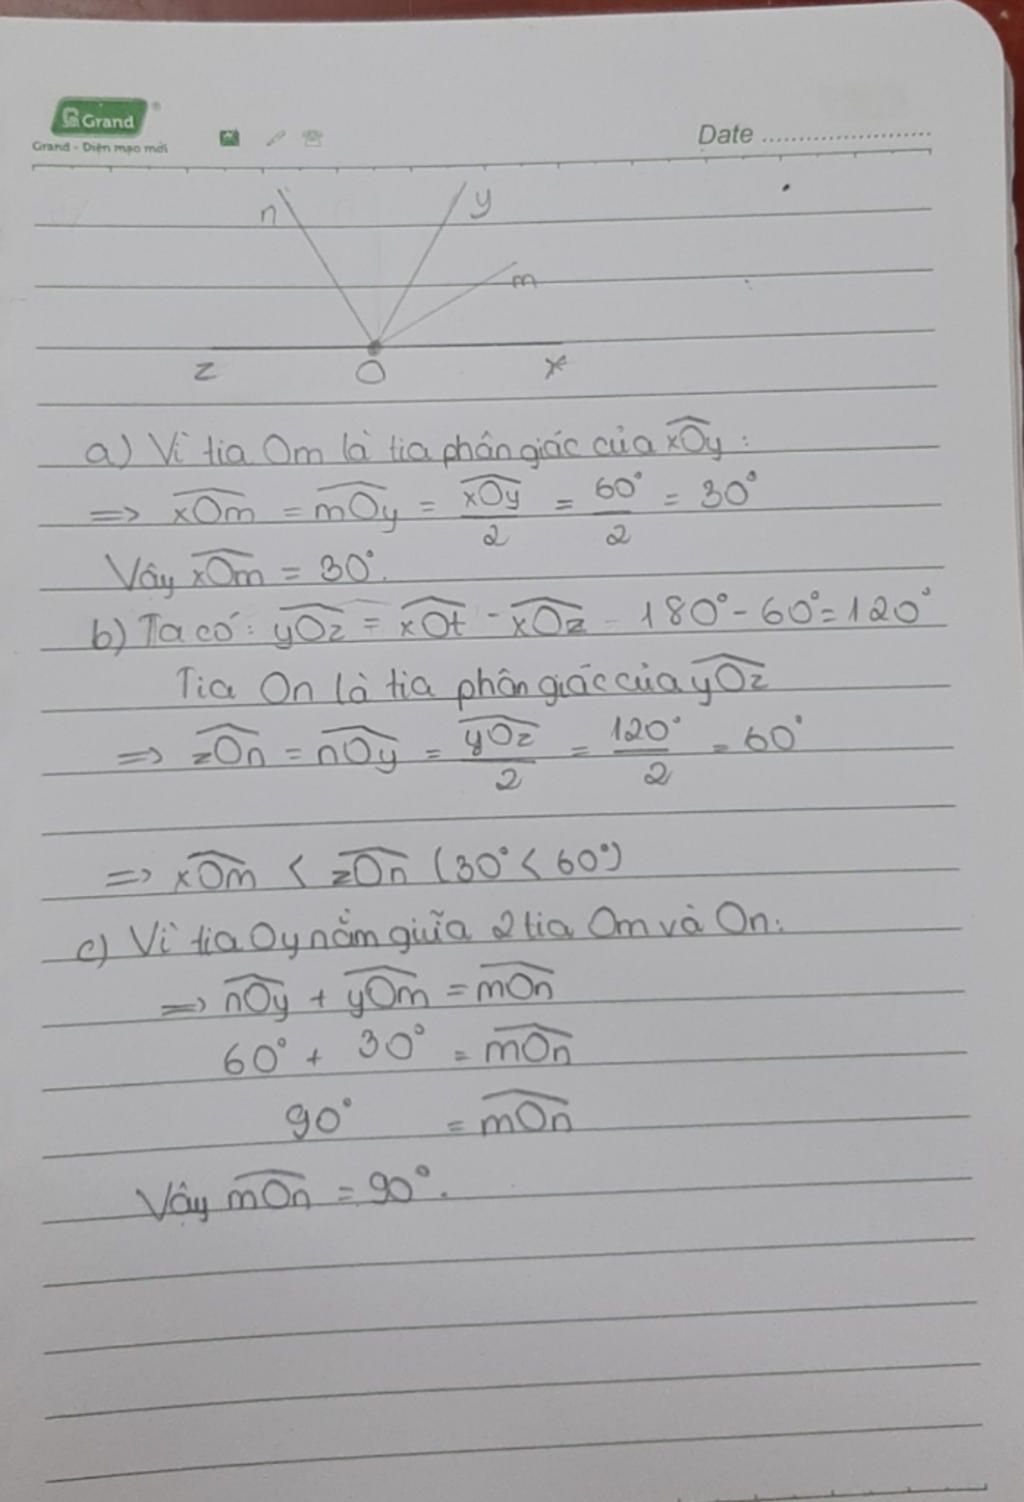 Grand
Grand - Diện mạo mới
Date
n y
m
z O x
a) Vì tia Om là tia phân giác của xOy:
=> xOm = mOy = xOy/2 = 60°/2 = 30°
Vây xOm = 30°.
b) Ta có: yOz = xOt - xOz = 180° - 60° = 120°
Tia On là tia phân giác của yOz
=> zOn = nOy = yOz/2 = 120°/2 = 60°
=> xOm < zOn (30° < 60°)
c) Vì tia Oy nằm giữa 2 tia Om và On:
=> nOy + yOm = mOn
60° + 30° = mOn
90° = mOn
Vây mOn = 90°.